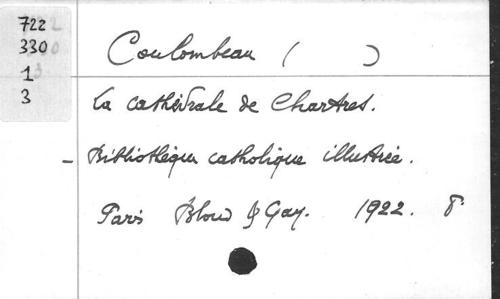 722
330
1
3
Coulombeau ( )
La cathédrale de Chartres.
- Bibliothèque catholique illustrée.
Paris Bloud & Gay. 1922. 8°